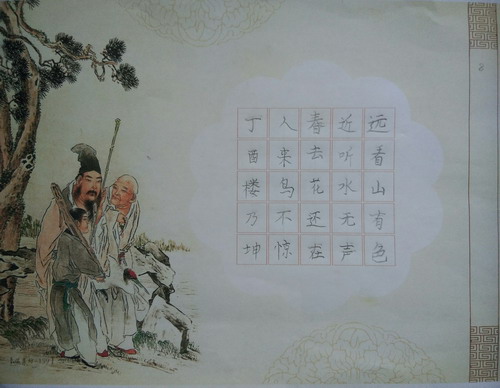 远看山有色
近听水无声
春去花还在
人来鸟不惊
丁酉楼乃坤